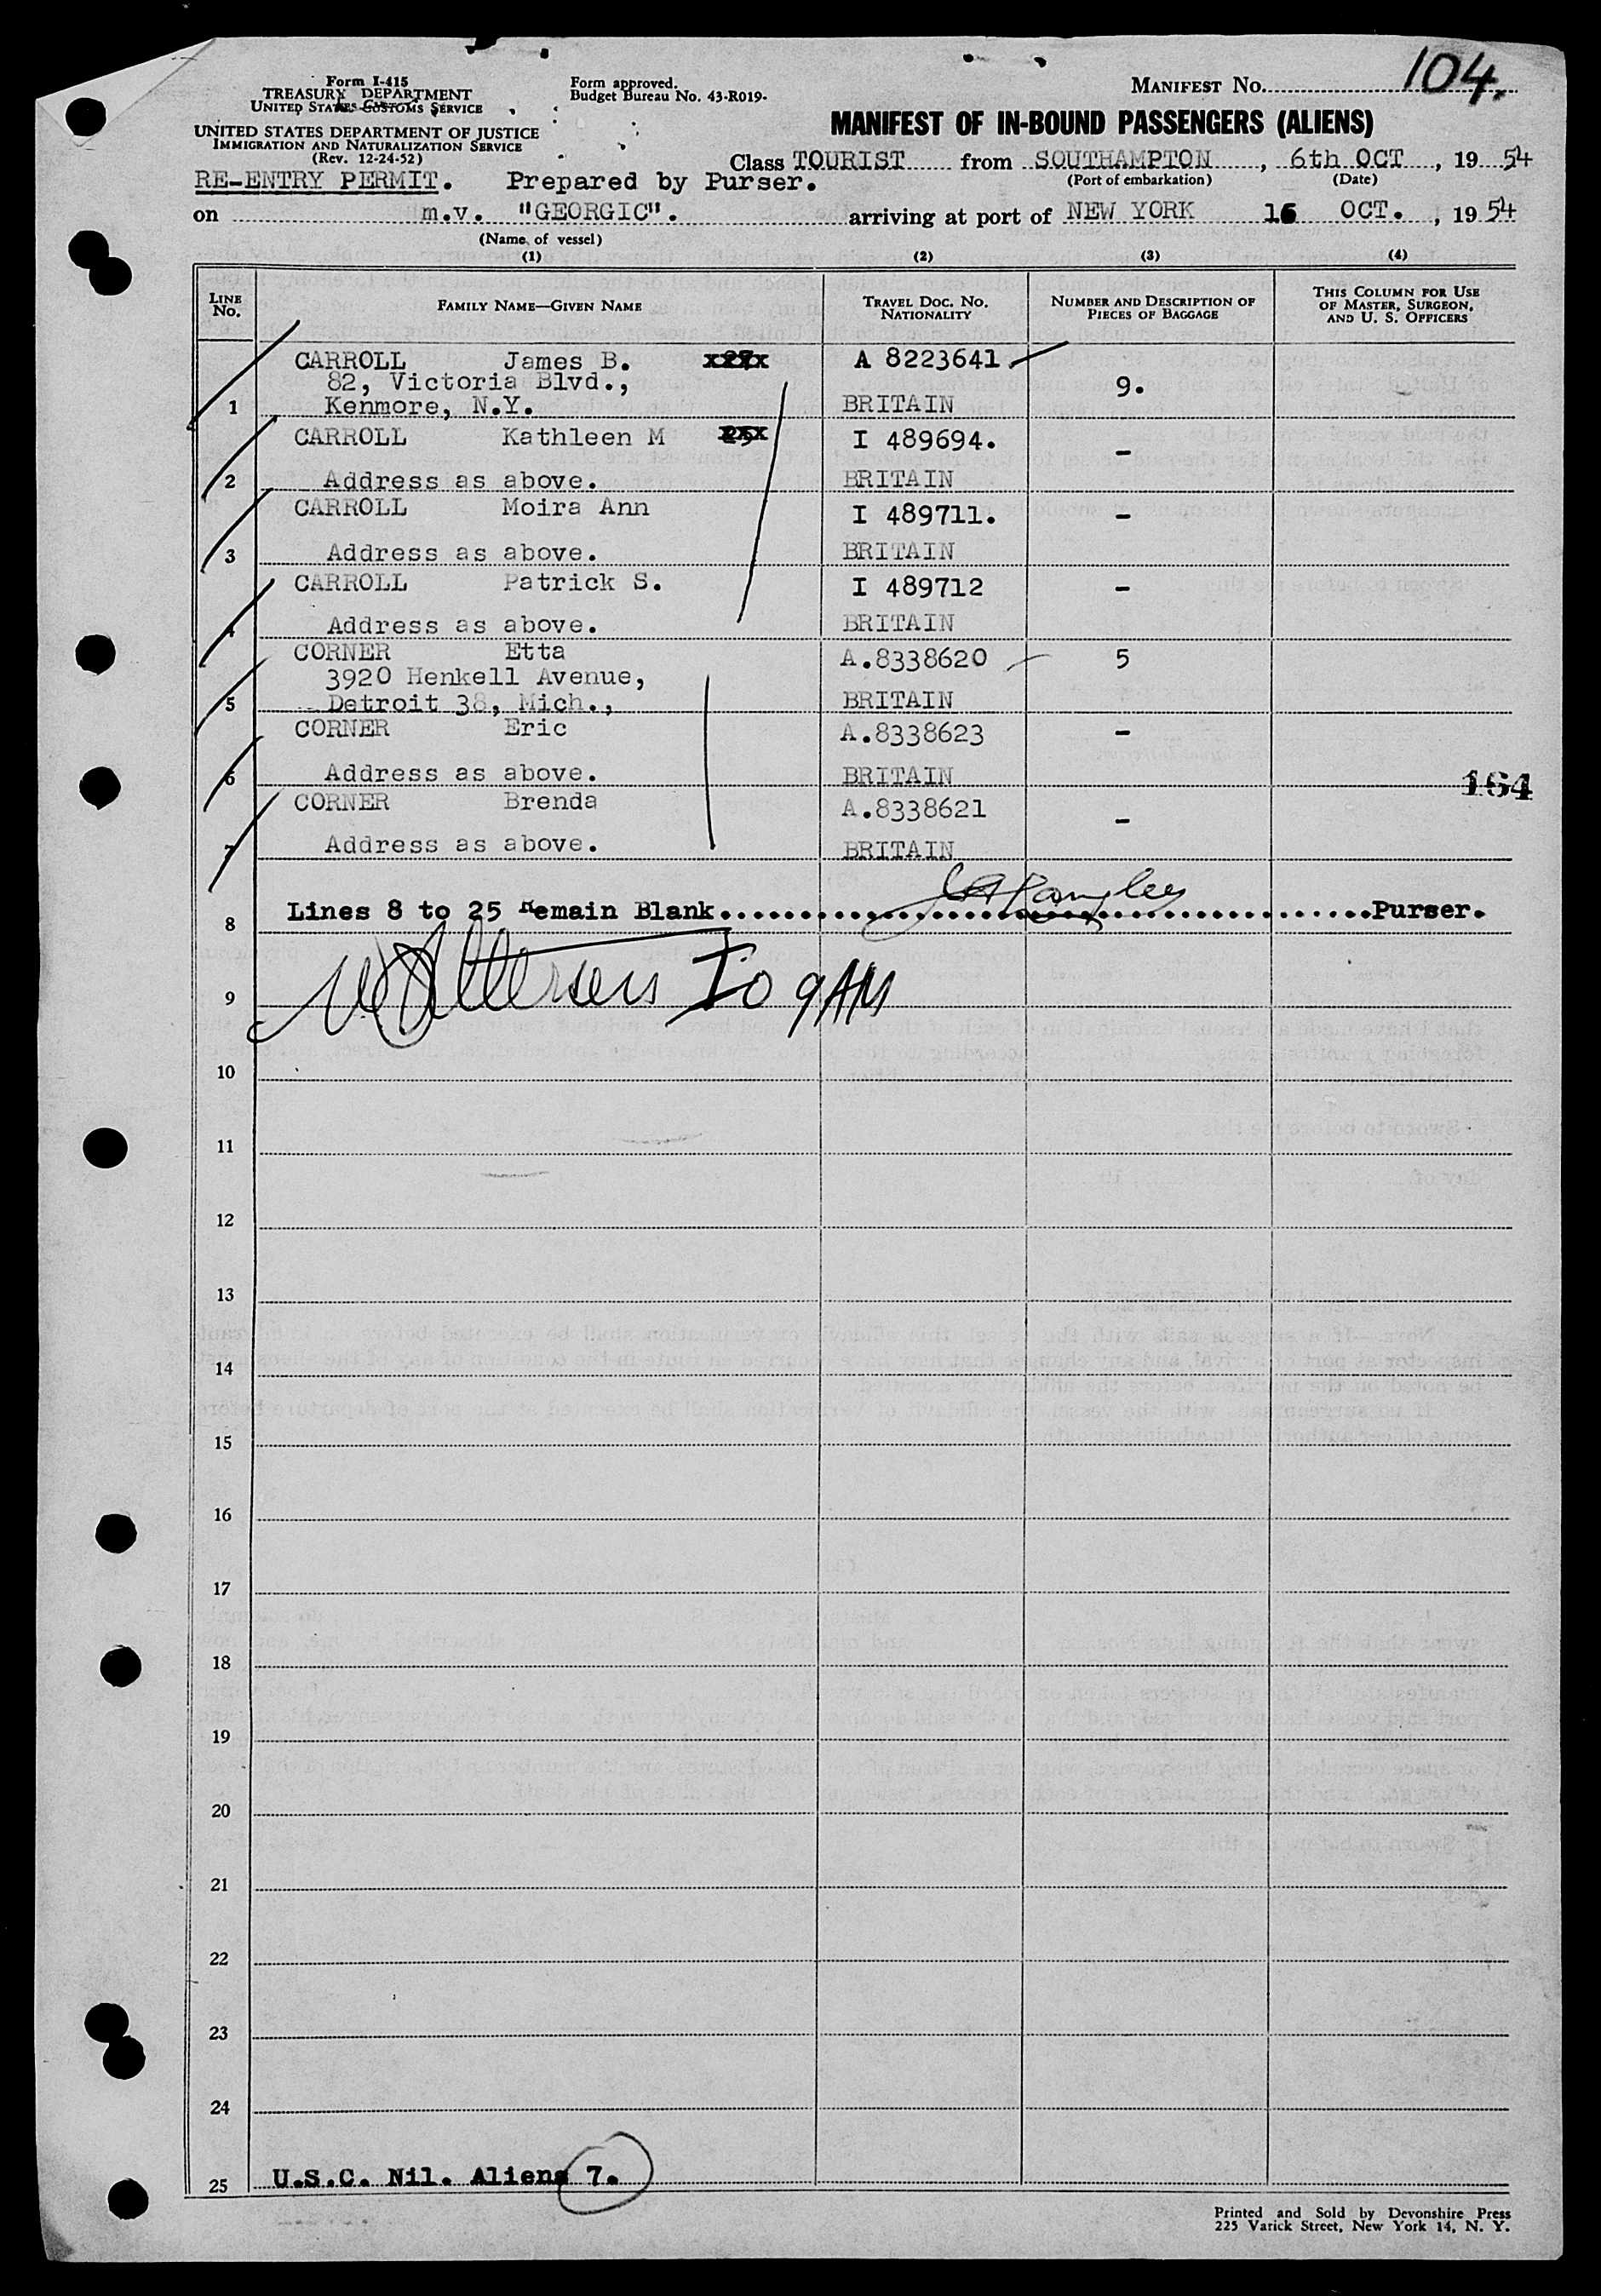 Form I-415
TREASURY DEPARTMENT
UNITED STATES CUSTOMS SERVICE
UNITED STATES DEPARTMENT OF JUSTICE
IMMIGRATION AND NATURALIZATION SERVICE
(Rev. 12-24-52)
Form approved.
Budget Bureau No. 43-R019-
MANIFEST No. 104.
MANIFEST OF IN-BOUND PASSENGERS (ALIENS)
Class TOURIST from SOUTHAMPTON, 6th OCT, 1954
(Port of embarkation) (Date)
RE-ENTRY PERMIT. Prepared by Purser.
on m.v. "GEORGIC". arriving at port of NEW YORK 16 OCT., 1954
(Name of vessel)
(1) (2) (3) (4)
LINE No. FAMILY NAME—GIVEN NAME TRAVEL DOC. No. NATIONALITY NUMBER AND DESCRIPTION OF PIECES OF BAGGAGE THIS COLUMN FOR USE OF MASTER, SURGEON, AND U. S. OFFICERS
CARROLL James B. A 8223641
82, Victoria Blvd., 9.
1 Kenmore, N.Y. BRITAIN
CARROLL Kathleen M I 489694. -
2 Address as above. BRITAIN
CARROLL Moira Ann I 489711. -
3 Address as above. BRITAIN
CARROLL Patrick S. I 489712 -
4 Address as above. BRITAIN
CORNER Etta A.8338620 5
3920 Henkell Avenue,
5 Detroit 38, Mich., BRITAIN
CORNER Eric A.8338623 -
6 Address as above. BRITAIN
164
CORNER Brenda A.8338621 -
7 Address as above. BRITAIN
8 Lines 8 to 25 Remain Blank. Purser.
9 IO 9AM
10
11
12
13
14
15
16
17
18
19
20
21
22
23
24
25 U.S.C. Nil. Aliens 7.
Printed and Sold by Devonshire Press
225 Varick Street, New York 14, N. Y.